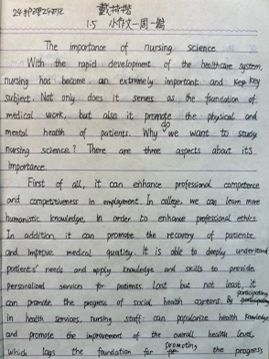 24护理24
1.5 小作文一周一篇
The importance of nursing science
With the rapid development of the healthcare system,
nursing has become an extremely important and key
subject. Not only does it serves as the foundation of
medical work, but also it promote the physical and
mental health of patients. Why do we want to study
nursing science? There are three aspects about its
importance.
First of all, it can enhance professional competence
and competitiveness in employment. In college, we can learn more
humanistic knowledge in order to enhance professional ethics.
In addition, it can promote the recovery of patients
and improve medical quantity. It is able to deeply understand
patients' needs and apply knowledge and skills to provide
personalized services for patients. Last but not least, it
can promote the progress of social health careers. By participating
in health services, nursing staff can popularize health knowledge
and promote the improvement of the overall health level,
which lays the foundation for promoting the progress